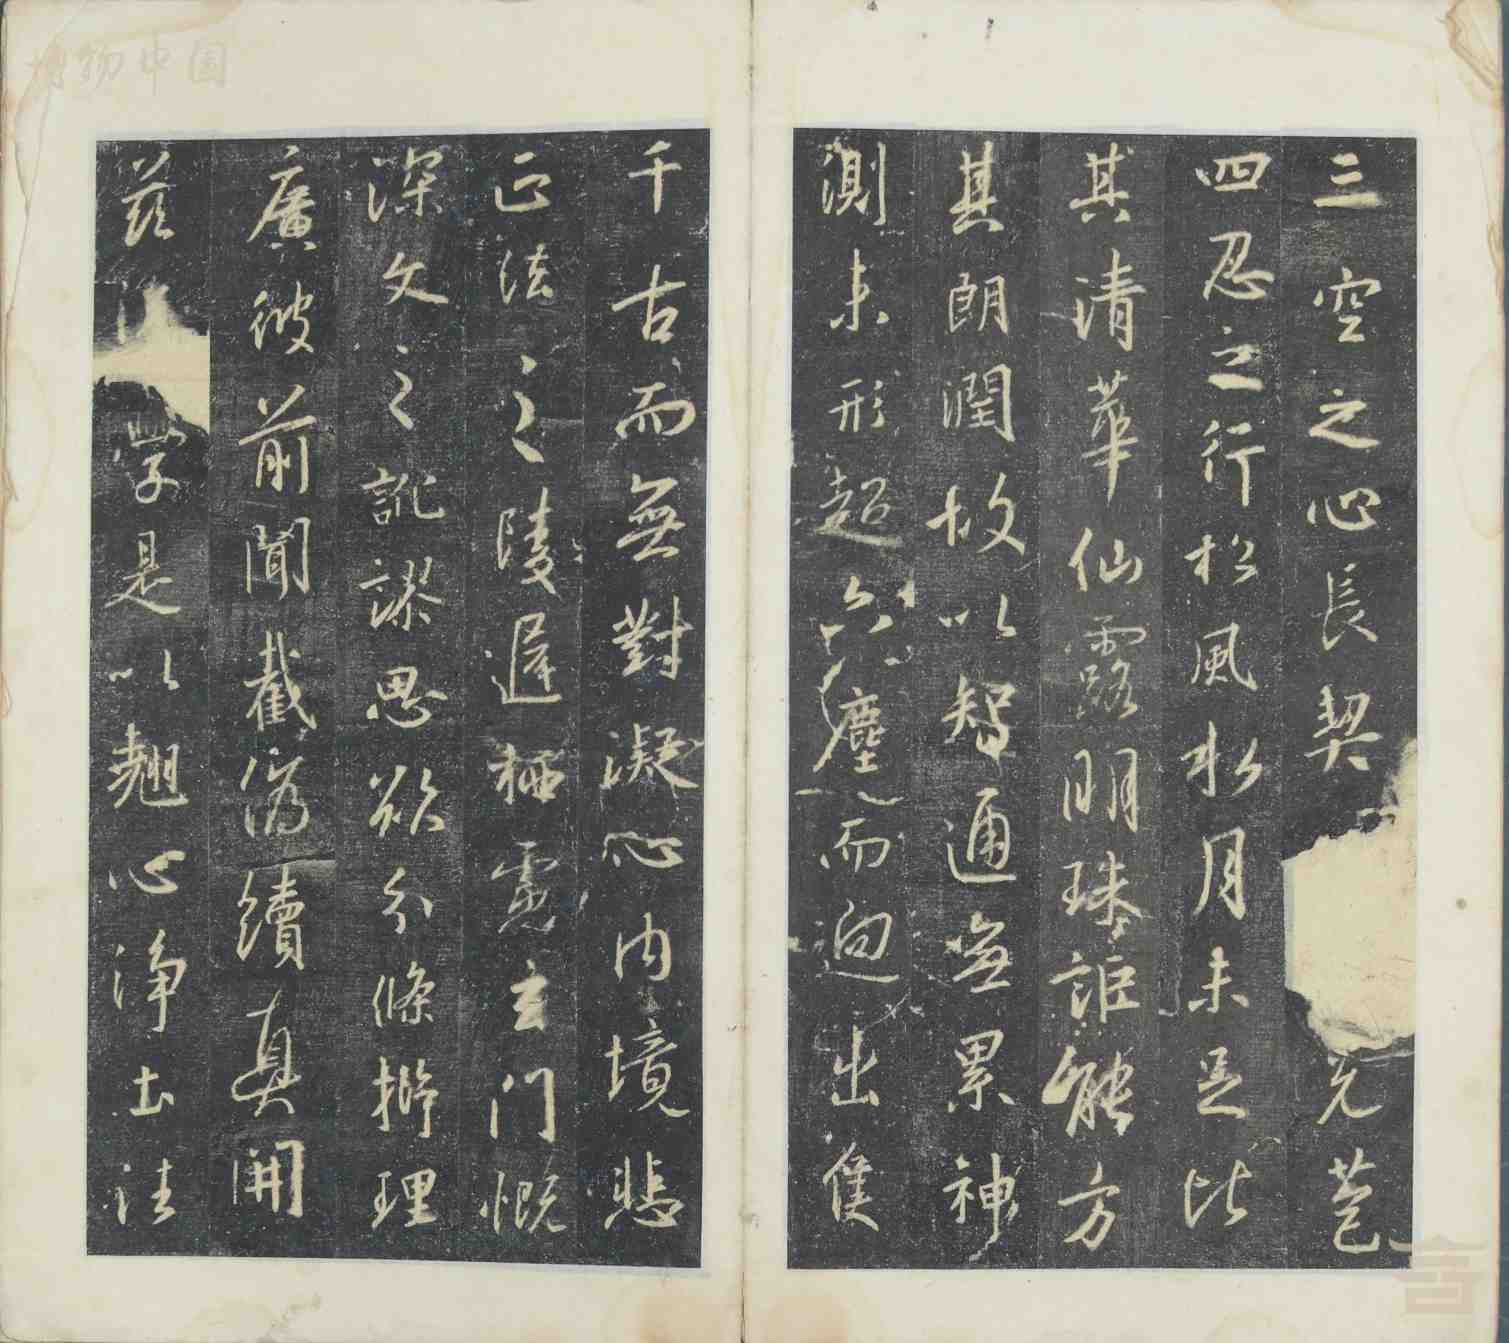 三空之心長契
先苞
四忍之行松風水月未足比
其清華仙露明珠詎能方
其朗潤故以智通無累神
測未形超六塵而迥出隻
千古而無對凝心內境悲
正法之陵遲栖慮玄門慨
深文之訛謬思欲分條析理
廣彼前聞截偽續真開
茲
學是以翹心淨土法
博物中国